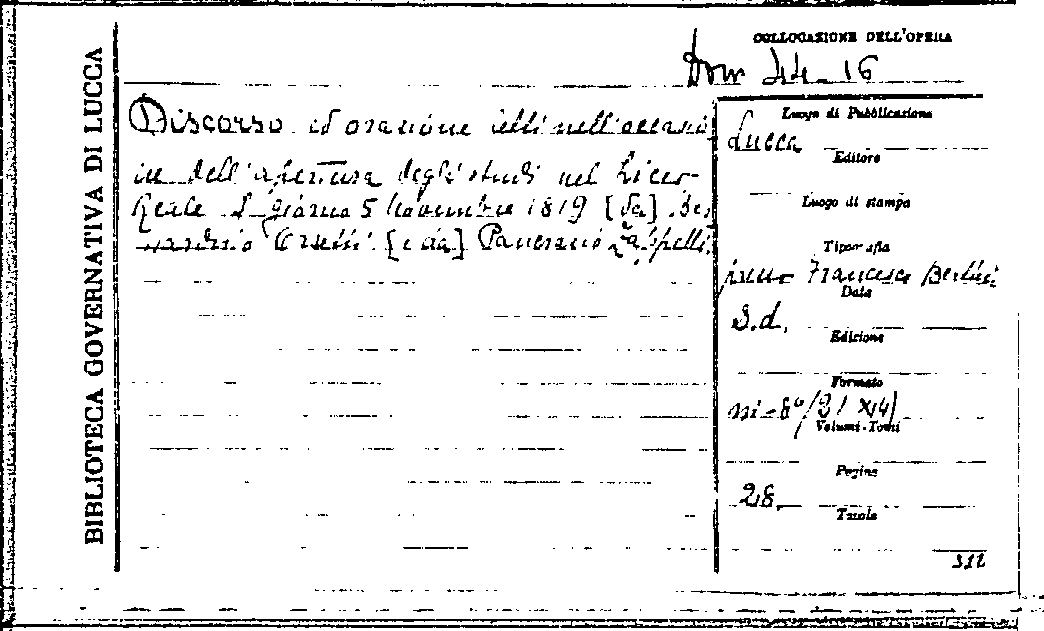 BIBLIOTECA GOVERNATIVA DI LUCCA
COLLOCAZIONE DELL'OPERA
44-16
Discorso ed orazione letti nell'occasio
ne dell'apertura degli studi nel Liceo
Reale il giorno 5 Novembre 1819 [da] Ber
nardino Orsetti [e da] Pancrazio
Luogo di Pubblicazione
Lucca
Editore
Luogo di stampa
Tipografia
Francesco Bertini
Data
S.d.
Edizione
Formato
in-8°
Volumi-Tomi
Pagine
28.
Tavole